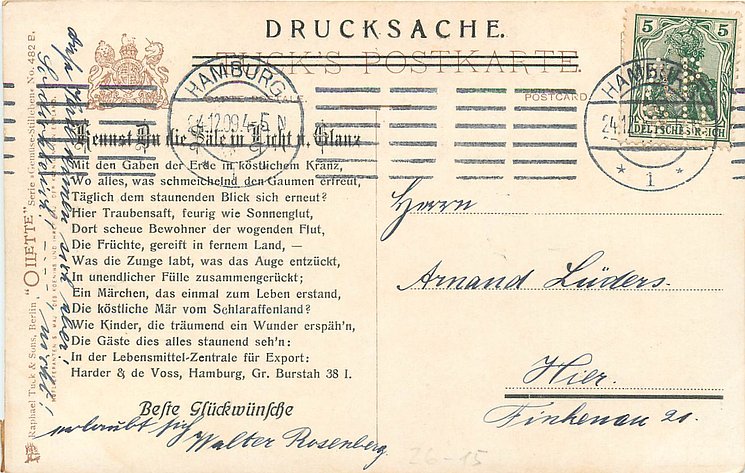 DRUCKSACHE.
TUCK'S POSTKARTE.
POSTCARD
HAMBURG
24.12.09.4-5 N
HAMBURG
24.12
* 1 *
5 5
DEUTSCHES REICH
Kennst Du die Säle in Licht u. Glanz
Mit den Gaben der Erde in köstlichem Kranz,
Wo alles, was schmeichelnd den Gaumen erfreut,
Täglich dem staunenden Blick sich erneut?
Hier Traubensaft, feurig wie Sonnenglut,
Dort scheue Bewohner der wogenden Flut,
Die Früchte, gereift in fernem Land, —
Was die Zunge labt, was das Auge entzückt,
In unendlicher Fülle zusammengerückt;
Ein Märchen, das einmal zum Leben erstand,
Die köstliche Mär vom Schlaraffenland?
Wie Kinder, die träumend ein Wunder erspäh'n,
Die Gäste dies alles staunend seh'n:
In der Lebensmittel-Zentrale für Export:
Harder & de Voss, Hamburg, Gr. Burstah 38 I.
Beste Glückwünsche
erlaubt sich
Walter Rosenberg.
Herrn
Armand Lüders.
Hier.
Finkenau 20.
26-15
Raphael Tuck & Sons, Berlin, "OILETTE" Serie „Gemüse-Stilleben" No. 482 B.